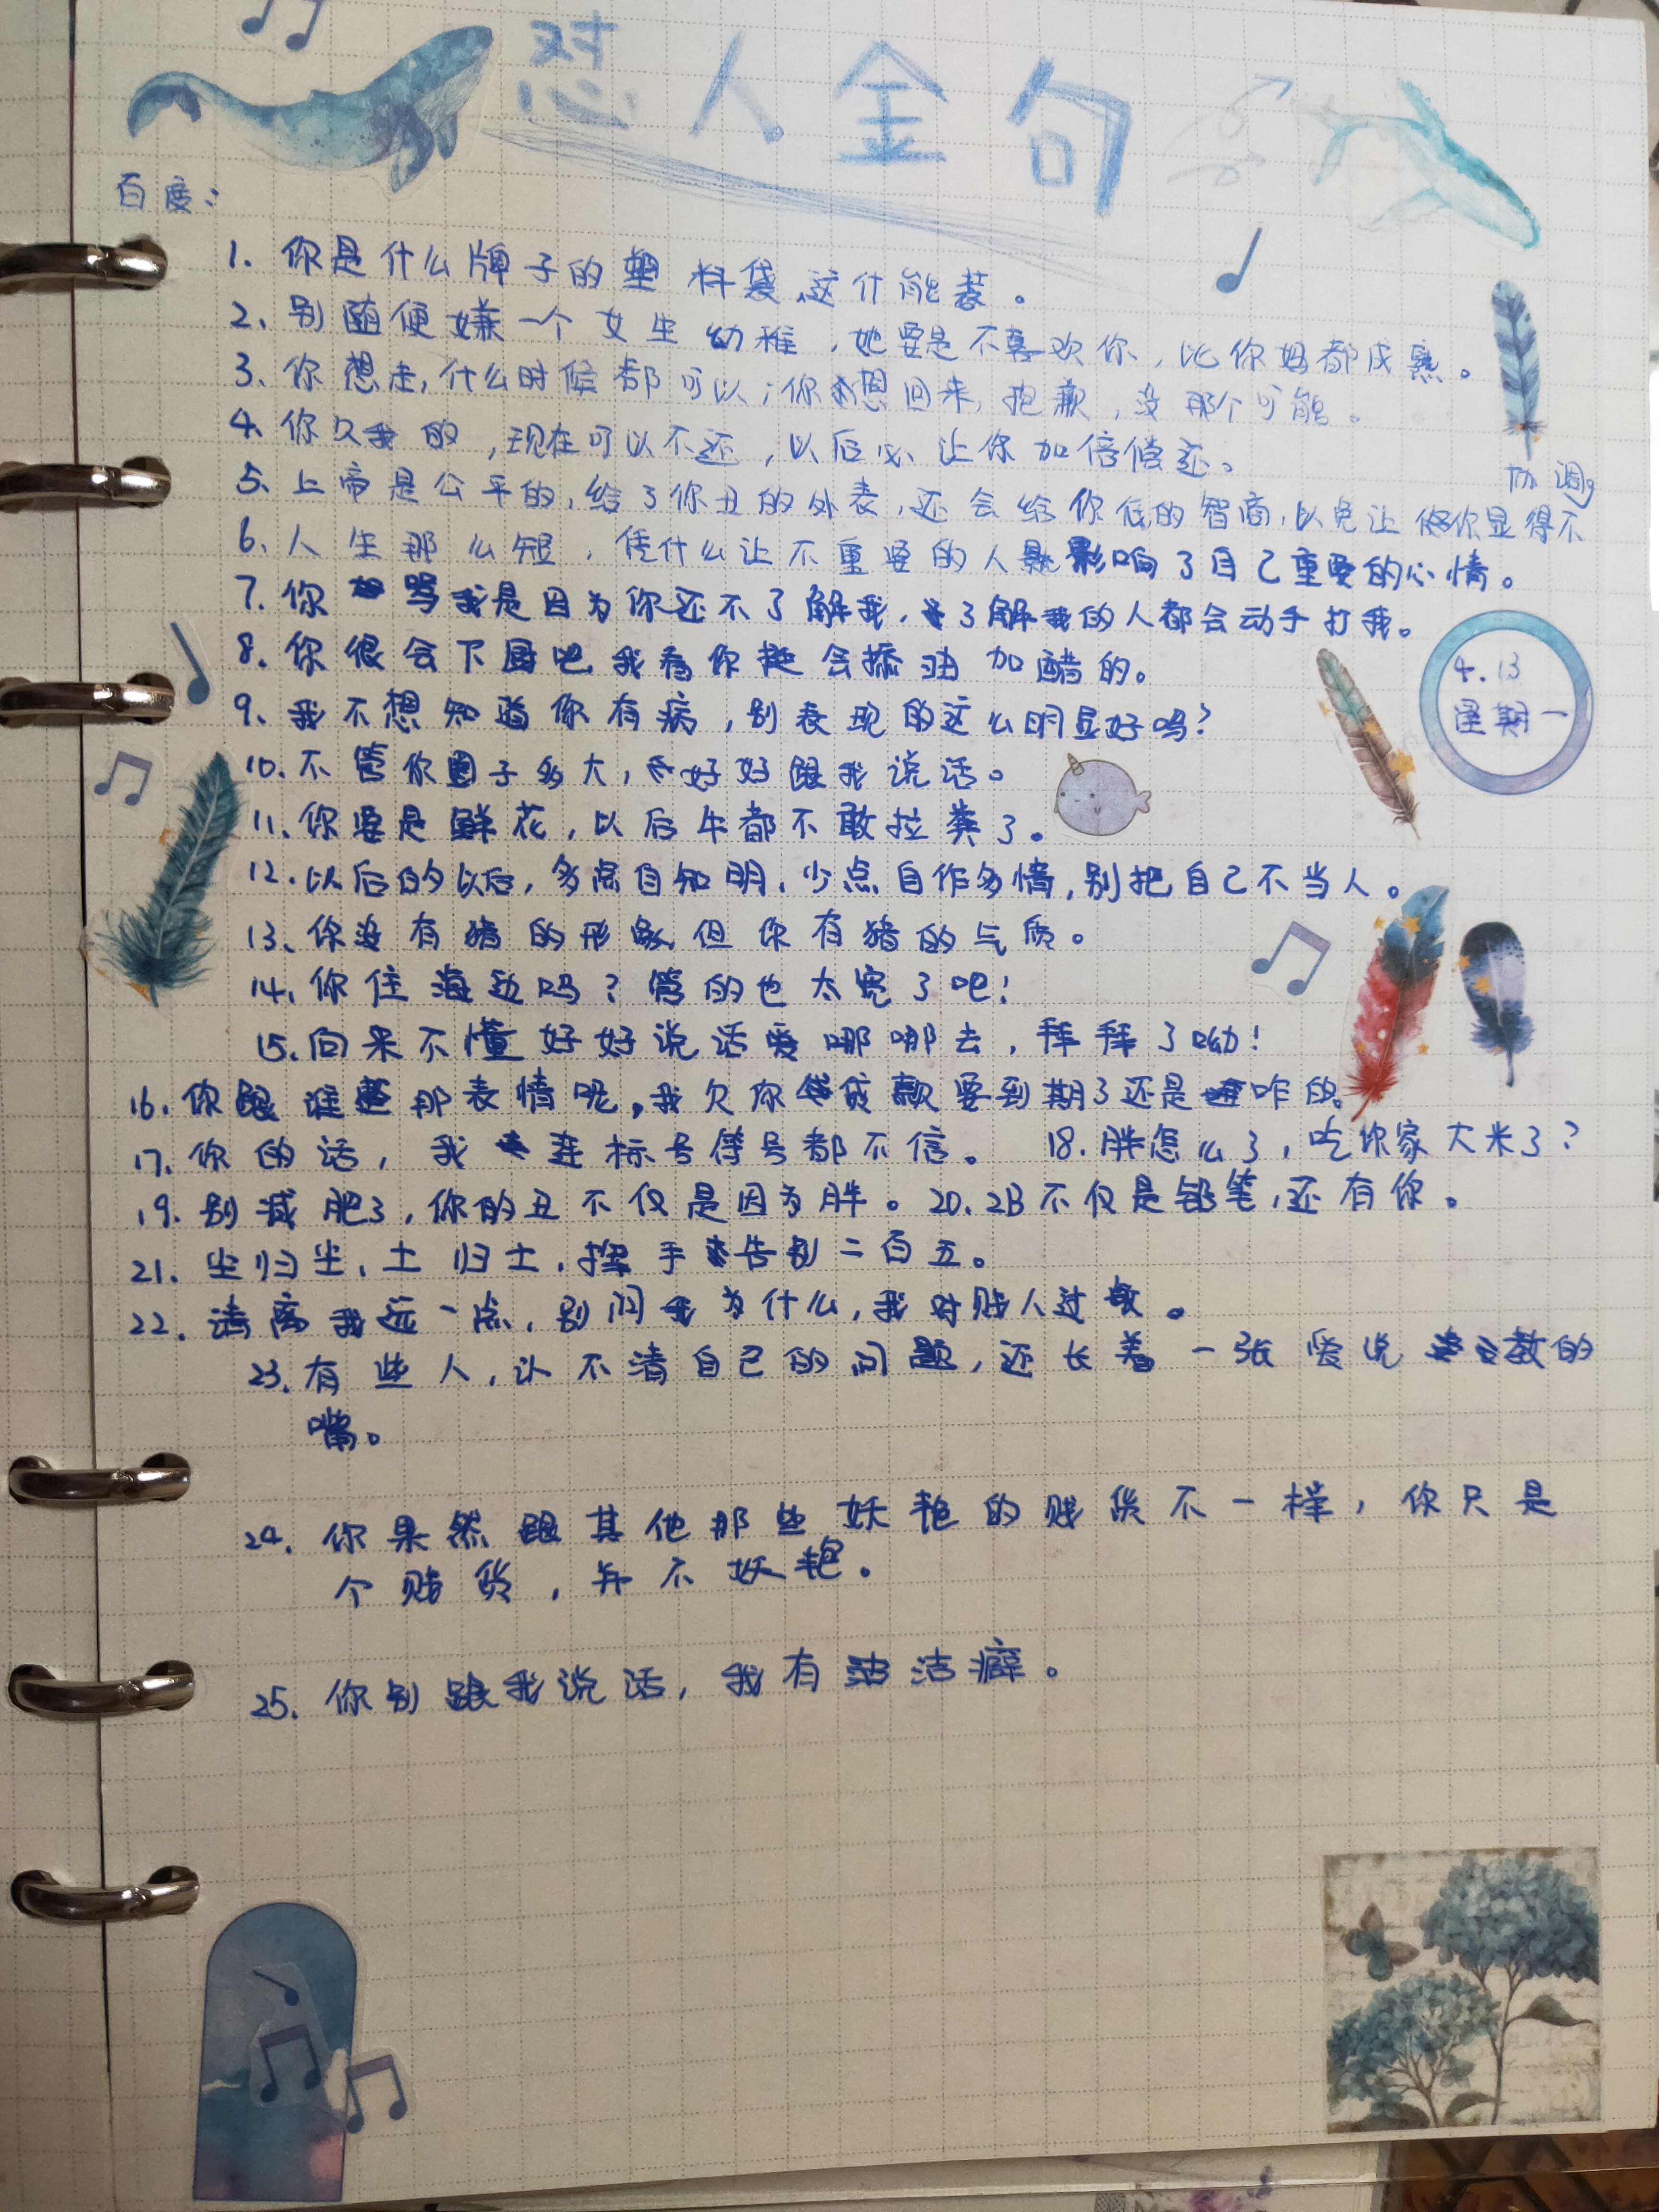 怼人金句
百度:
1. 你是什么牌子的塑料袋,这什能装。
2、别随便嫌一个女生幼稚,她要是不喜欢你,比你妈都成熟。
3、你想走,什么时候都可以;你想回来,抱歉,没那个可能。
4、你欠我的,现在可以不还,以后必让你加倍偿还。
协调。
5、上帝是公平的,给了你丑的外表,还会给你低的智商,以免让你显得不
6、人生那么短,凭什么让不重要的人影响了自己重要的心情。
7、你骂我是因为你还不了解我,了解我的人都会动手打我。
8、你很会下厨吧,我看你挺会添油加醋的。
4.13
星期一
9、我不想知道你有病,别表现的这么明显好吗?
10、不管你圈子多大,好好跟我说话。
11、你要是鲜花,以后牛都不敢拉粪了。
12、以后的以后,多点自知明,少点自作多情,别把自己不当人。
13、你没有猪的形象,但你有猪的气质。
14、你住海边吗?管的也太宽了吧!
15、向来不懂好好说话爱哪哪去,拜拜了呦!
16、你跟谁那表情呢,我欠你贷款要到期了还是咋的。
17、你的话,我连标号符号都不信。 18、胖怎么了,吃你家大米了?
19、别减肥了,你的丑不仅是因为胖。20、2B不仅是铅笔,还有你。
21、尘归尘,土归土,挥手告别二百五。
22、请离我远一点,别问我为什么,我对贱人过敏。
23、有些人,认不清自己的问题,还长着一张爱说教的
嘴。
24、你果然跟其他那些妖艳的贱货不一样,你只是
个贱货,并不妖艳。
25、你别跟我说话,我有洁癖。